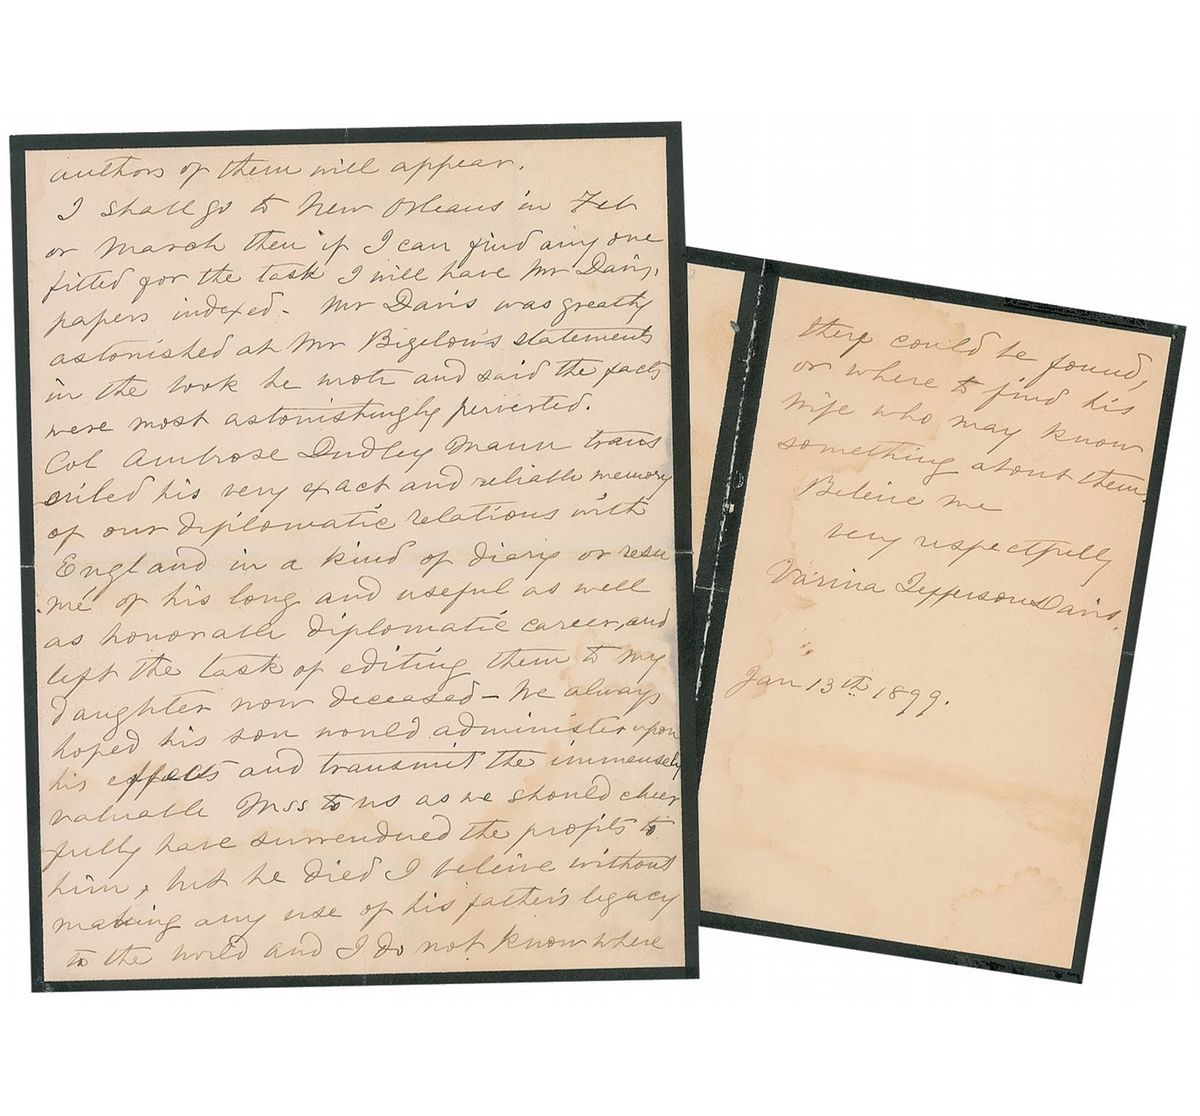 authors of them will appear.
I shall go to New Orleans in Feb
or March then if I can find any one
fitted for the task I will have Mr Davis,
papers indexed - Mr Davis was greatly
astonished at Mr Bigelow's statements
in the book he wrote and said the facts
were most astonishingly perverted.
Col Ambrose Dudley Mann trans
cribed his very exact and reliable memory
of our diplomatic relations with
England in a kind of diary or resu
mé of his long and useful as well
as honorable diplomatic career, and
left the task of editing them to my
daughter now deceased - We always
hoped his son would administer upon
his effects and transmit the immensely
valuable Mss to us as we should cheer
fully have surrendered the profits to
him, but he died I beleive without
making any use of his father's legacy
to the world and I do not know where
they could be found,
or where to find his
wife who may know
something about them
Beleive me
very respectfully
Varina Jefferson Davis.
Jan 13th 1899.